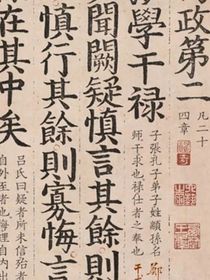 政第二
凡二十
四章
學干禄
子張孔子弟子姓顓孫名
師干求也禄仕者之奉也
聞闕疑慎言其餘則
慎行其餘則寡悔言
在其中矣
呂氏曰疑者所未信殆
自外至者也悔理自内